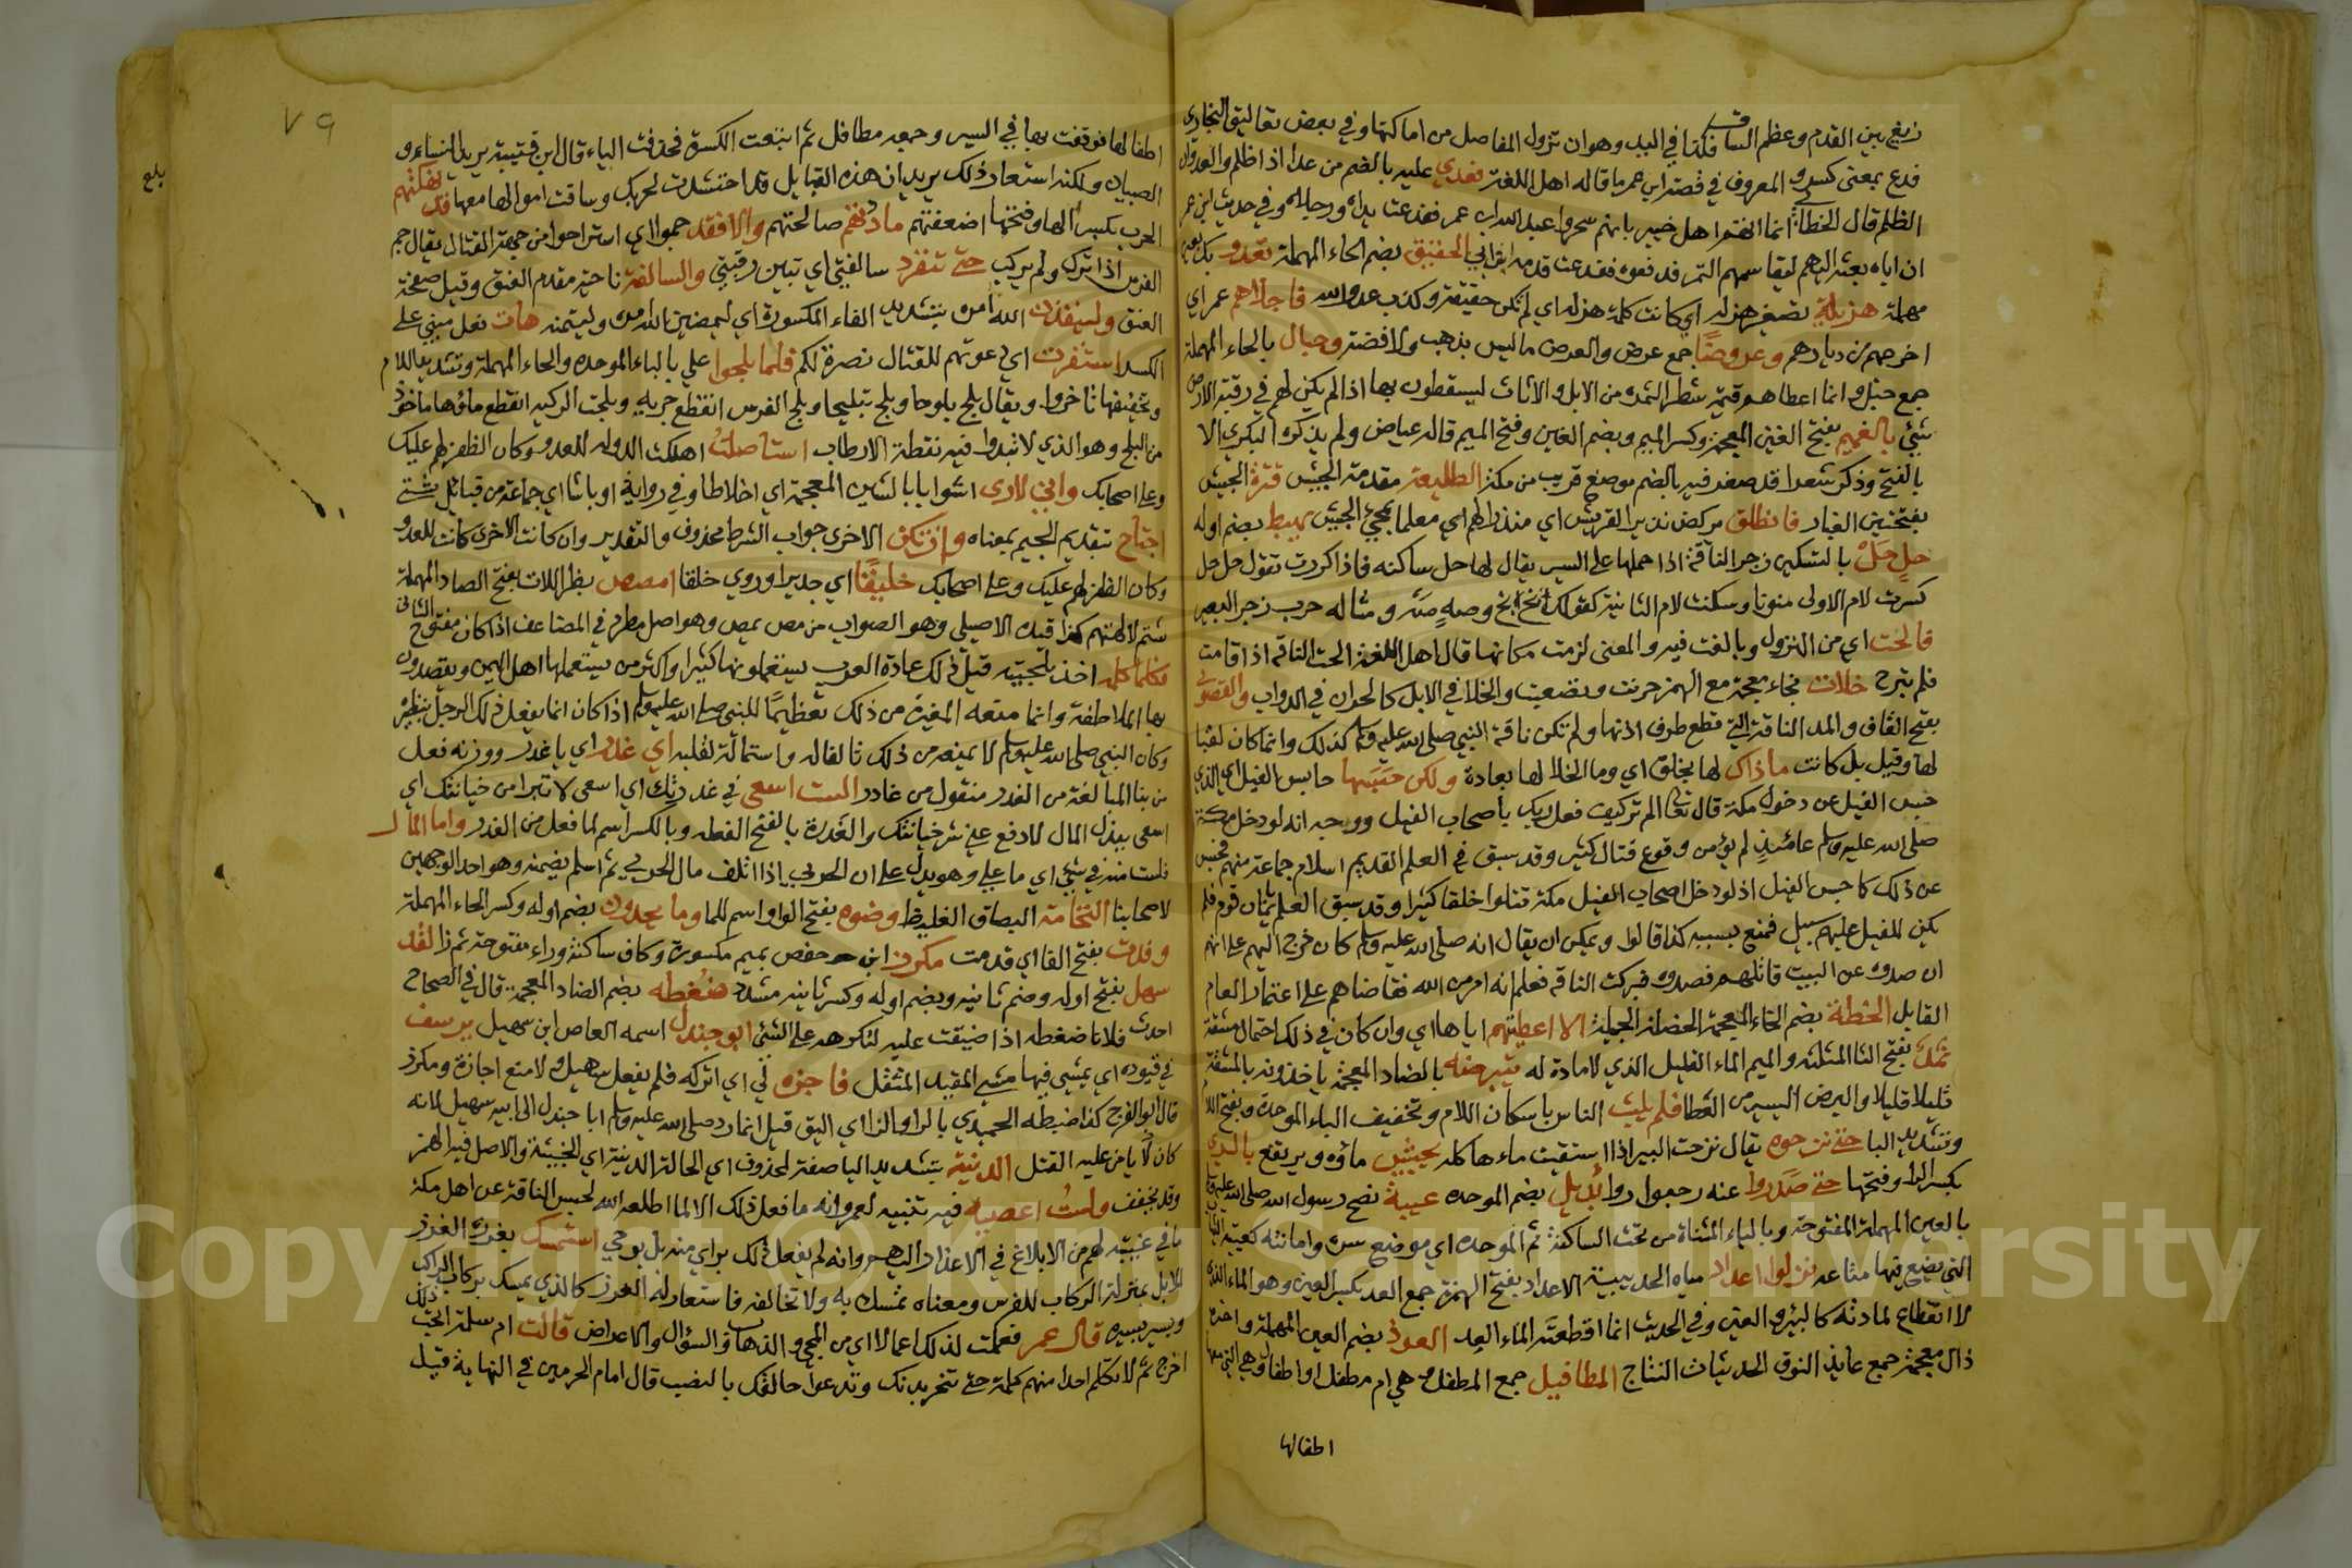 زيغ بين القدم وعظم الساق وكذا في اليد وهو ان تزول المفاصل من اماكنها وفي بعض تعاليق البخاري
فدع بمعنى كسر والمعروف في قصة ابن عمر ما قاله اهل اللغة فعدي عليه بالضم من عدا اذا ظلم والعدوان
الظلم قال الخطابي انما اتهم اهل خيبر بانهم سحروا عبد الله ابن عمر ففدعت يداه ورجلاه وفي حديث ابن عمر
ان اباه بعثه اليهم ليقاسمهم التمر فدفعوه ففدعت قدمه ابن ابي الحقيق بضم الحاء المهملة تعدو بك بعين
مهملة هزيلة تصغير هزله اي كانت كلمة هزله اي لم تكن حقيقة وكذب عدو الله فاجلاهم عمر اي
اخرجهم من ديارهم وعروضا جمع عرض والعرض ما ليس بذهب ولا فضة وحبال بالحاء المهملة
جمع حبل وانما اعطاهم قيمة شطر الثمرة من الابل والاثاث ليسقطون بها اذ لم يكن لهم في رقبة الارض
شيئ بالغميم بفتح الغين المعجمة وكسر الميم وبضم الغين وفتح الميم قاله عياض ولم يذكره البكري الا
بالفتح وذكر شعرا قد صغر فيه بالضم موضع قريب من مكة الطليعة مقدمة الجيش قترة الجيش
بفتحتين الغبار فانطلق يركض نذيرا لقريش اي منذرا لهم اي معلما بمجئ الجيش يهبط بضم اوله
حل حل بالتسكين زجر الناقة اذا حملها على السير يقال لها حل ساكنه فاذا كررت تقول حل حل
كسرت لام الاولى منونا وسكنت لام الثانية كقولك بخ بخ وصه صه ومثاله حرب زجر البعير
فالحت اي من النزول وبالغت فيه والمعنى لزمت مكانها قال اهل اللغة الحت الناقه اذا قامت
فلم تبرح خلات بخاء معجمة مع الهمز حرنت وتضعبت والخلا في الابل كالحران في الدواب والقصوى
بفتح القاف والمد الناقة التي قطع طرف اذنها ولم تكن ناقة النبي صلى الله عليه وسلم كذلك وانما كان لقبا
لها وقيل بل كانت ماذاك لها بخلق اي وما الخلا لها بعادة ولكن حبسها حابس الفيل اي الذي
حبس الفيل عن دخول مكة قال تعالى الم تر كيف فعل ربك باصحاب الفيل ووجهه انه لو دخل مكة
صلى الله عليه وسلم عامئذ لم يؤمن وقوع قتال كثير وقد سبق في العلم القديم اسلام جماعة منهم فحبس
عن ذلك كما حبس الفيل اذ لو دخل اصحاب الفيل مكة قتلوا خلقا كثيرا وقد سبق العلم بايمان قوم فلم
يكن للفيل عليهم سبيل فمنع بسببه كذا قالوا ويمكن ان يقال انه صلى الله عليه وسلم كان خرج اليهم على انهم
ان صدوه عن البيت قاتلهم فصدوه فبركت الناقه فعلم انه امر من الله فقاضاهم على اعتمار العام
القابل الخطة بضم الخاء المعجمة الخصلة الجميلة الا اعطيتهم اياها اي وان كان في ذلك احتمال مشقة
ثمد بفتح الثا المثلثه والميم الماء القليل الذي لا مادة له يتبرضه بالضاد المعجمة ياخذونه بالمشقة
قليلا قليلا والبرض اليسير من العطا فلم يلبث الناس باسكان اللام وتخفيف الباء الموحدة وبفتح اللام
وتشديد البا حتى نزحوه يقال نزحت البير اذا استقيت ماءها كله يجيش ماؤه ويرتفع بالري
بكسر الرا وفتحها حتى صدروا عنه رجعوا روا بديل بضم الموحده عيبة نصح رسول الله صلى الله عليه وسلم
بالعين المهملة المفتوحة وبالياء المثناة من تحت الساكنة ثم الموحده اي موضع سره وامانته كعيبة الثياب
التي يضع فيها متاعه نزلوا اعداد مياه الحديبية الاعداد بفتح الهمزة جمع العد بكسر العين وهو الماء الذي
لا انقطاع لمادته كالبئر والعين وفي الحديث انما اقطعته الماء العد العوذ بضم العين المهملة واخره
ذال معجمة جمع عايذ النوق الحديثات النتاج المطافيل جمع المطفل وهي ام مطفل او اطفال وهي التي معها
اطفالها
٧٩
بلغ
اطفالها فوقفت بها في السير وجمعه مطافل ثم اشبعت الكسرة فحذفت الياء قال ابن قتيبة يريد النساء و
الصبيان ولكنه استعار ذلك يريد ان هذه القبايل قد احتشدت لحربك وساقت اموالها معها قد نهكتهم
الحرب بكسر الها وفتحها اضعفتهم ماددتهم صالحتهم والا فقد جموا اي استراحوا من جهة القتال يقال جم
الفرس اذا ترك ولم يركب حتى تنفرد سالفتي اي تبين رقبتي والسالفة ناحية مقدم العنق وقيل صفحة
العنق ولينفذن الله امره بتشديد الفاء المكسورة اي ليمضين الله امره وليتمنه هات فعل مبني على
الكسر استنفرت اي دعوتهم للقتال نصرة لكم فلما بلحوا علي بالباء الموحده والحاء المهملة وتشديد اللام
وتخفيفها تاخروا ويقال بلح بلوحا وبلح تبليحا وبلح الفرس انقطع جريه وبلحت الركية انقطع ماؤها ماخوذ
من البلح وهو الذي لا تبدوا فيه نقطة الارطاب استاصلت اهلكت الدوله للعدو وكان الظفر لهم عليك
وعلى اصحابك واني لارى اشوابا بالشين المعجمة اي اخلاطا وفي رواية اوباشا اي جماعة من قبائل شتى
اجتاح بتقديم الجيم بمعناه وان تكن الاخرى جواب الشرط محذوف والتقدير وان كانت الاخرى كانت للعدو
وكان الظفر لهم عليك وعلى اصحابك خليقا اي جديرا وروي خلقا امصص بظر اللات بفتح الصاد المهملة
شتم لالهتهم كذا قيده الاصيلي وهو الصواب من مص يمص وهو اصل مطرد في المضاعف اذا كان مفتوح الثاني
فكلما كلمه اخذ بلحيته قيل ذلك عادة العرب يستعملونها كثيرا واكثر من يستعملها اهل اليمن ويقصدون
بها الملاطفة وانما منعه المغيرة من ذلك تعظيما للنبي صلى الله عليه وسلم اذ كان انما يفعل ذلك الرجل بنظيره
وكان النبي صلى الله عليه وسلم لا يمنعه من ذلك تالفا له واستمالة لقلبه اي غدر اي يا غدر ووزنه فعل
من بنا المبالغة من الغدر منقول من غادر الست اسعى في غدرتك اي اسعى لا تبرا من خيانتك اي
اسعى ببذل المال لادفع عني شر خيانتك والغدرة بالفتح الفعله وبالكسر اسم لما فعل من الغدر واما المال
فلست منه في شيئ اي ما علي وهو يدل على ان الحربي اذا اتلف مال الحربي ثم اسلم يضمنه وهو احد الوجهين
لاصحابنا النخامة البصاق الغليظ وضوه بفتح الواو اسم للما وما يحدون بضم اوله وكسر الحاء المهملة
وفدت بفتح الفا اي قدمت مكرز ابن حفص بميم مكسورة وكاف ساكنة وراء مفتوحة ثم زا لقد
سهل بفتح اوله وضم ثانيه وبضم اوله وكسر ثانيه مشدد ضغطه بضم الضاد المعجمة قال في الصحاح
اخذت فلانا ضغطه اذا ضيقت عليه لتكرهه على الشئ ابو جندل اسمه العاص ابن سهيل يرسف
في قيوده اي يمشي فيها مشي المقيد المثقل فاجزه لي اي اتركه فلم يفعل سهيل ولا منع اجازة ومكرز
قال ابو الفرج كذا ضبطه الحميدي بالرا وبالزا اي اليق قيل انما رد صلى الله عليه وسلم ابا جندل الى ابيه سهيل لانه
كان لا يامن عليه القتل الدنية بتشديد اليا صفة لمحذوف اي الحالة الدنية اي الخبيثة والاصل فيه الهمز
وقد يخفف ولست اعصيه فيه تنبيه لعمر وانه ما فعل ذلك الا لما اطلعه الله لحبس الناقة عن اهل مكة
ما في غيبته لهم من الابلاغ في الاعذار اليهم وانه لم يفعل ذلك براي منه بل بوحي استمسك بغرزه الغرز
للابل بمنزلة الركاب للفرس ومعناه تمسك به ولا تخالفه فاستعار له الغرز كالذي يمسك بركاب الراكب
ويسير بسيره قال عمر فعملت لذلك اعمالا اي من المجئ والذهاب والسؤال والاعراض قالت ام سلمة اتحب ذلك
اخرج ثم لا تكلم احدا منهم كلمة حتى تنحر بدنك وتدعوا حالقك بالنصب قال امام الحرمين في النهاية قيل